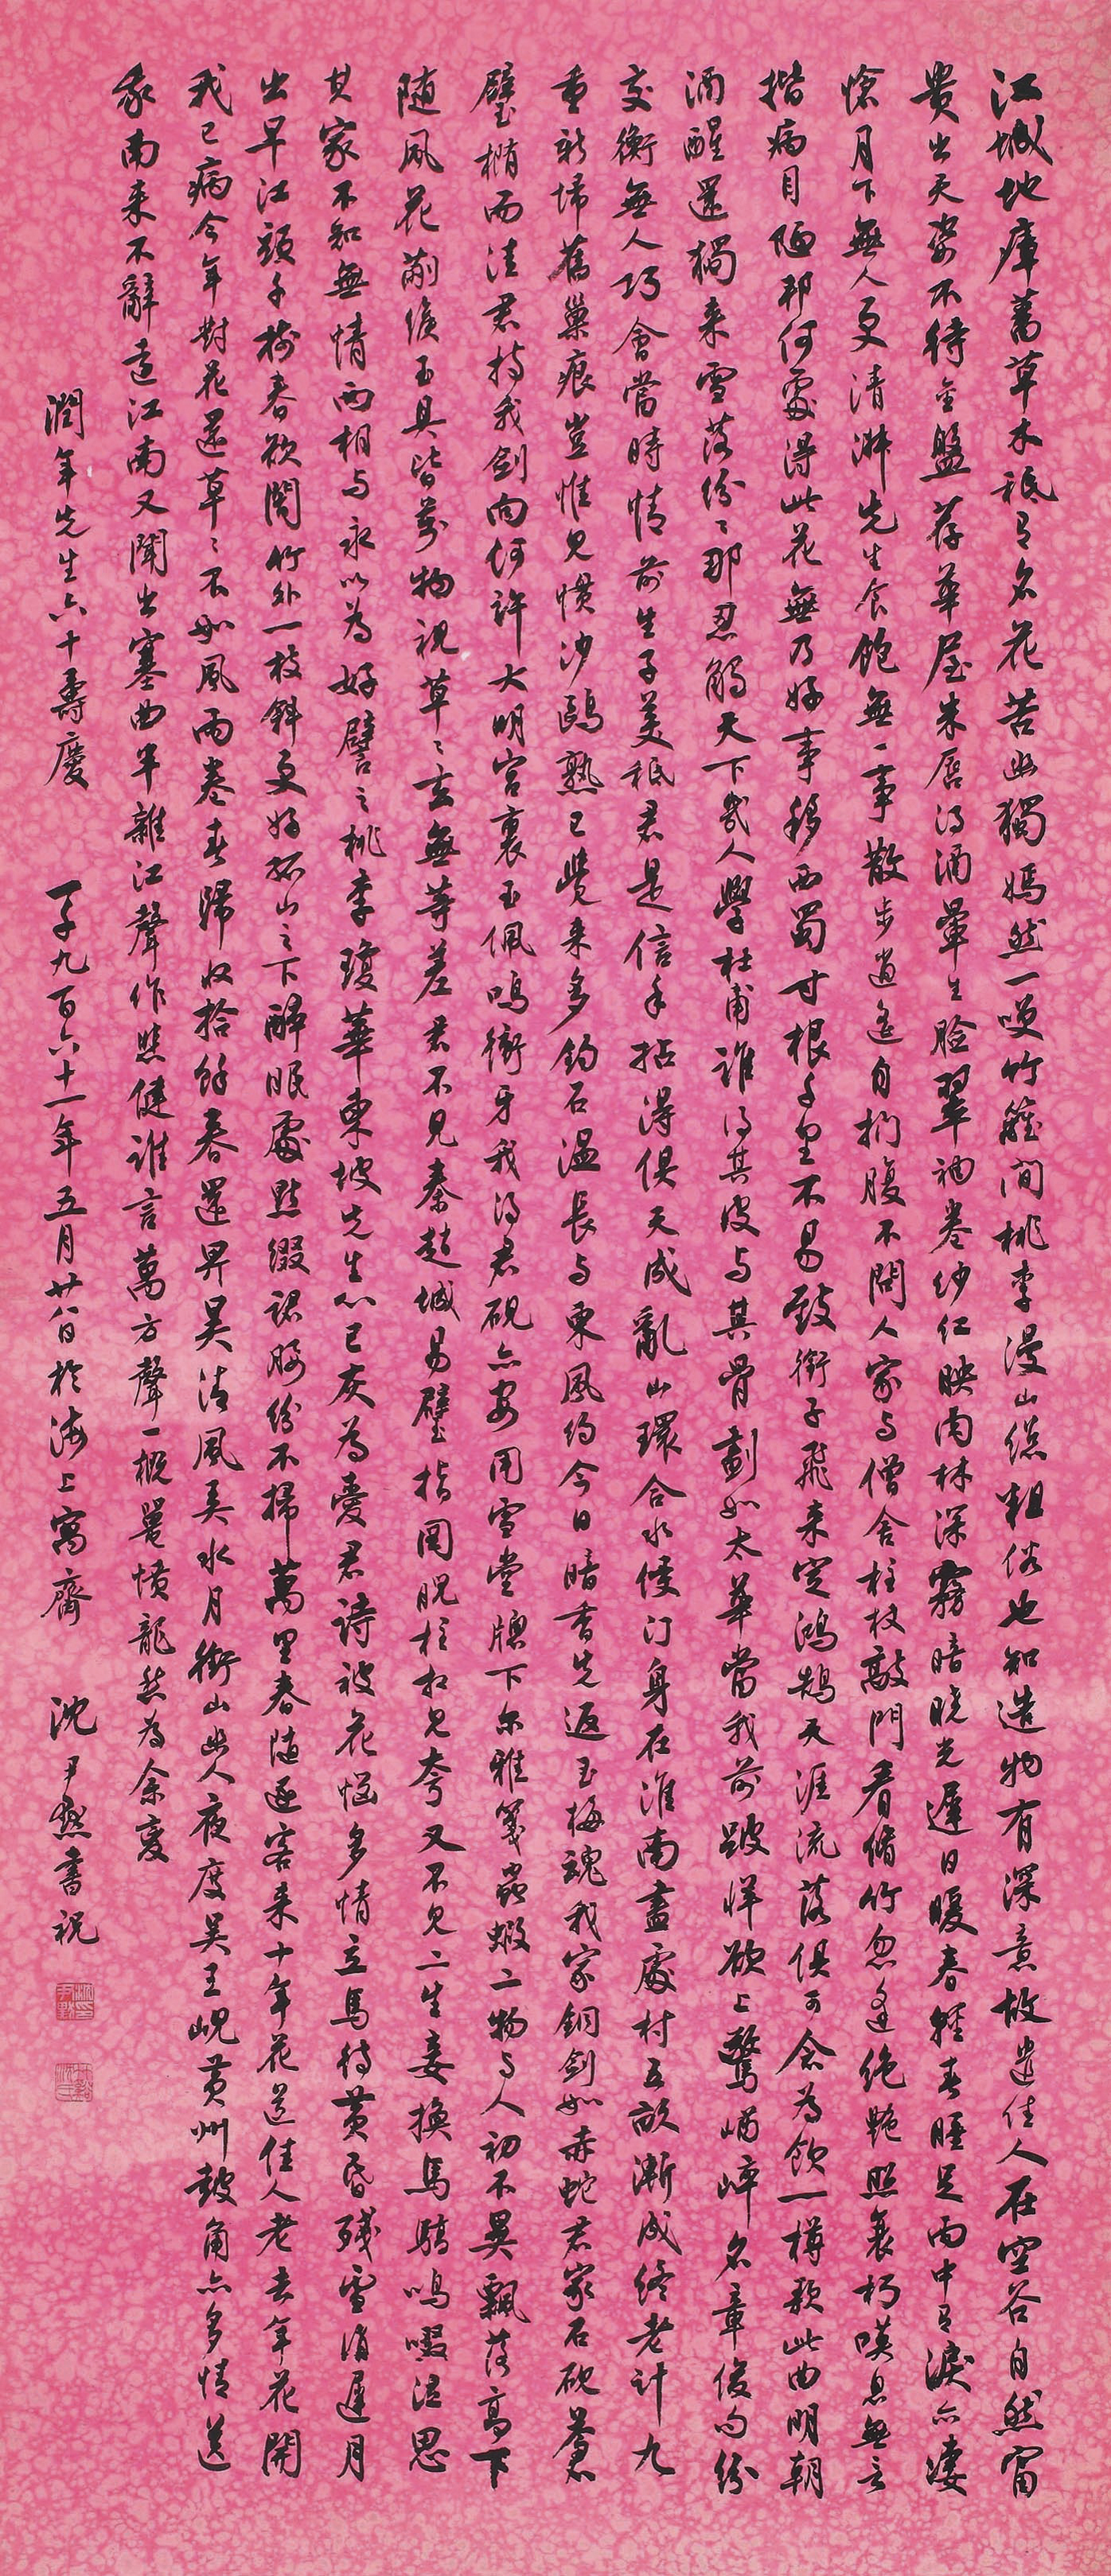 江城地瘴蕃草木秪有名花苦幽獨嫣然一笑竹籬間桃李漫山總粗俗也知造物有深意故遣佳人在空谷自然富
貴出天姿不待金盤荐華屋朱唇得酒暈生臉翠袖卷紗紅映肉林深霧暗曉光遲日暖春輕春睡足雨中有淚亦悽
愴月下無人更清淑先生食飽無一事散步逍遙自捫腹不問人家与僧舍柱杖敲門看脩竹忽逢绝艷照衰朽嘆息無言
揩病目陋邦何處得此花無乃好事移西蜀寸根千里不易致銜子飛来定鴻鵠天涯流落俱可念為飲一樽歌此曲明朝
酒醒還獨来雪落紛〻那忍觸天下幾人學杜甫誰得其皮与其骨劃如太華當我前跛牂欲上驚崷崒名章俊句紛
交衡無人巧會當時情前生子美秪君是信手拈得俱天成亂山環合水侵门身在淮南盡處村五畝漸成終老計九
重新埽舊巢痕豈惟見慣沙鷗熟已覺来多釣石溫長与東風约今日暗香先返玉梅魂我家銅劍如赤蛇君家石砚蒼
璧橢而洼君持我劍向何許大明宫裏玉佩鳴衝牙我得君砚亦安用雪堂牕下尔雅箋蟲蝦二物与人初不異飄落高下
随風花蒯緱玉具皆芻物視草〻玄無等差君不見秦趙城易璧指圖睨柱相兒夸又不見二生妾換馬驕鳴啜泣思
其家不知無情兩相与永以為好譬之桃李瓊華東坡先生心已灰為愛君詩被花惱多情立馬待黄昏殘雪消遲月
出早江頭千樹春欲闇竹外一枝斜更好孤山之下醉眠處點綴裙腰紛不掃萬里春随逐客来十年花送佳人老去年花開
我已病今年對花還草〻不如風雨卷春歸收拾餘春還昇昊清風弄水月銜山幽人夜度吴王峴黄州鼓角亦多情送
我南来不辭遠江南又聞出塞曲半雜江聲作悲健誰言萬方聲一概鼍愤龍愁為余變
潤年先生六十壽慶　一千九百六十一年五月廿八日於海上寓齋　沈尹默書祝